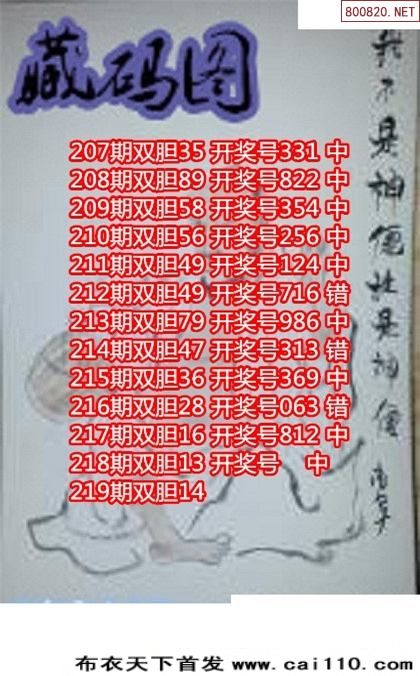 800820.NET
藏码图
207期双胆35 开奖号331 中
208期双胆89 开奖号822 中
209期双胆58 开奖号354 中
210期双胆56 开奖号256 中
211期双胆49 开奖号124 中
212期双胆49 开奖号716 错
213期双胆79 开奖号986 中
214期双胆47 开奖号313 错
215期双胆36 开奖号369 中
216期双胆28 开奖号063 错
217期双胆16 开奖号812 中
218期双胆13 开奖号 中
219期双胆14
我不是神仙
是神仙
布衣天下首发 www.cai110.com